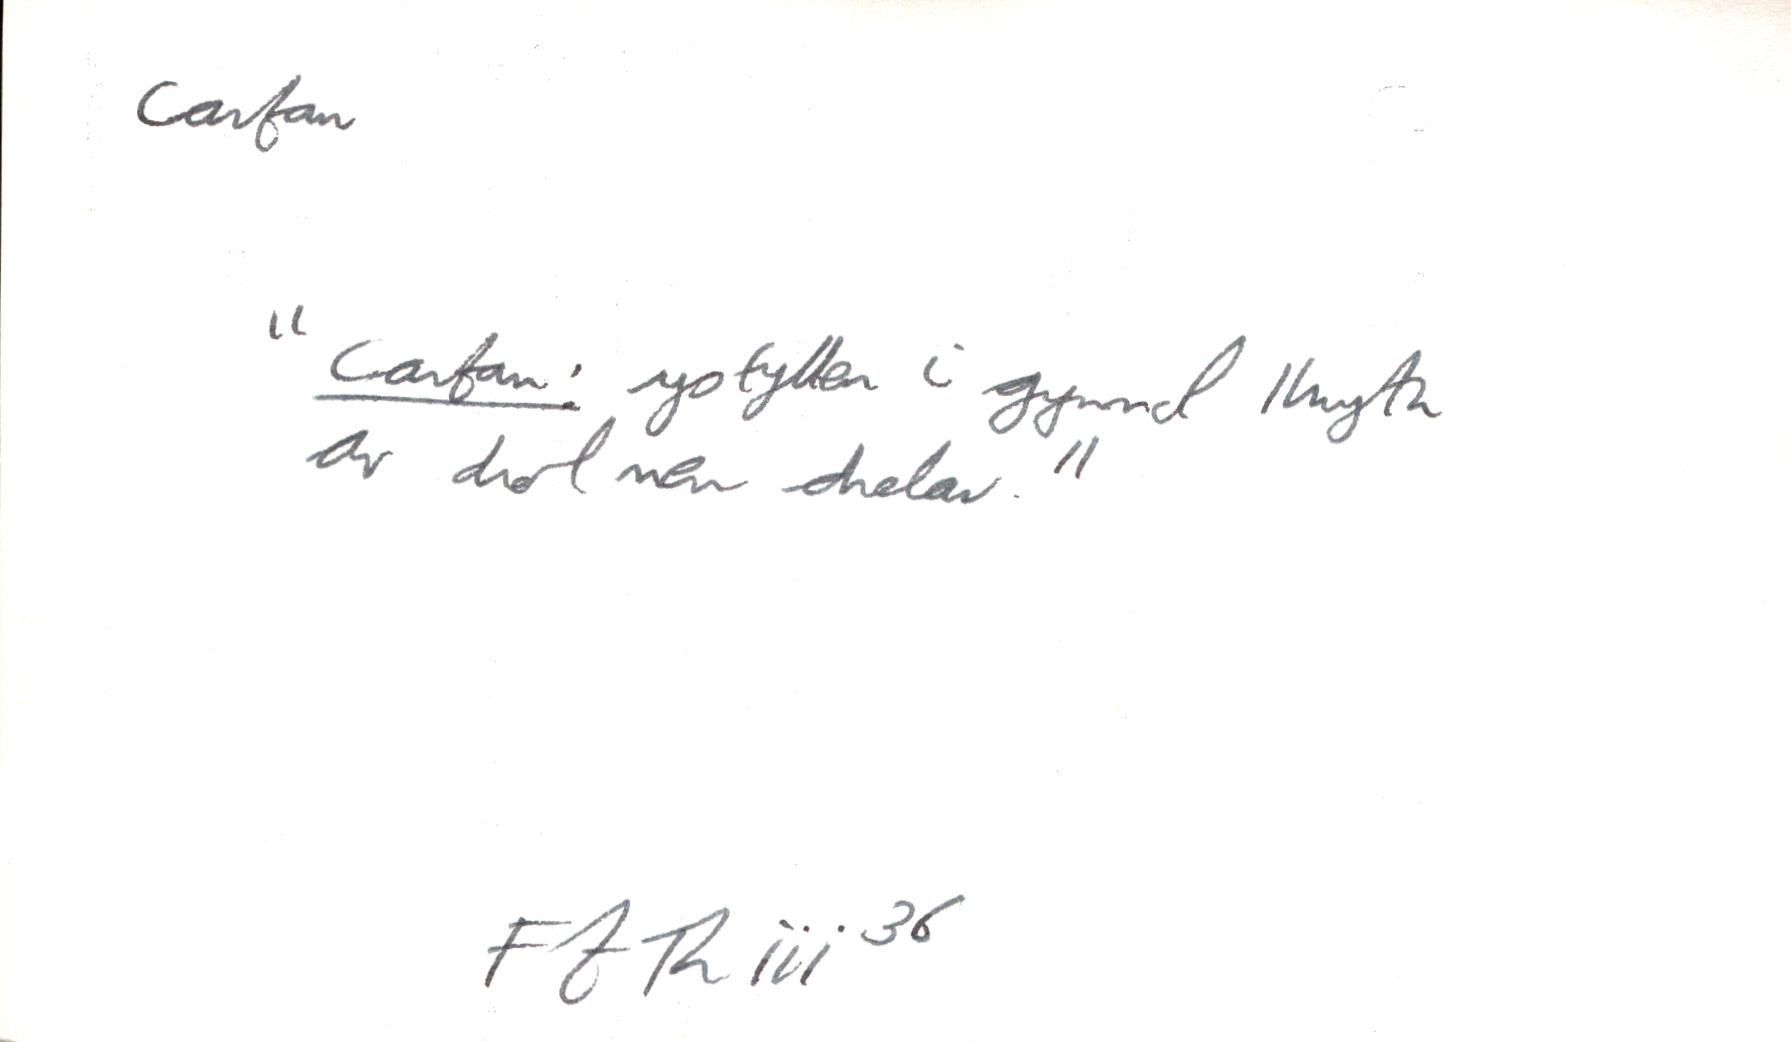 Carfan
"Carfan: ystyllen i gynnal llwyth
ar drol neu drelar."
Ff Th iii 36